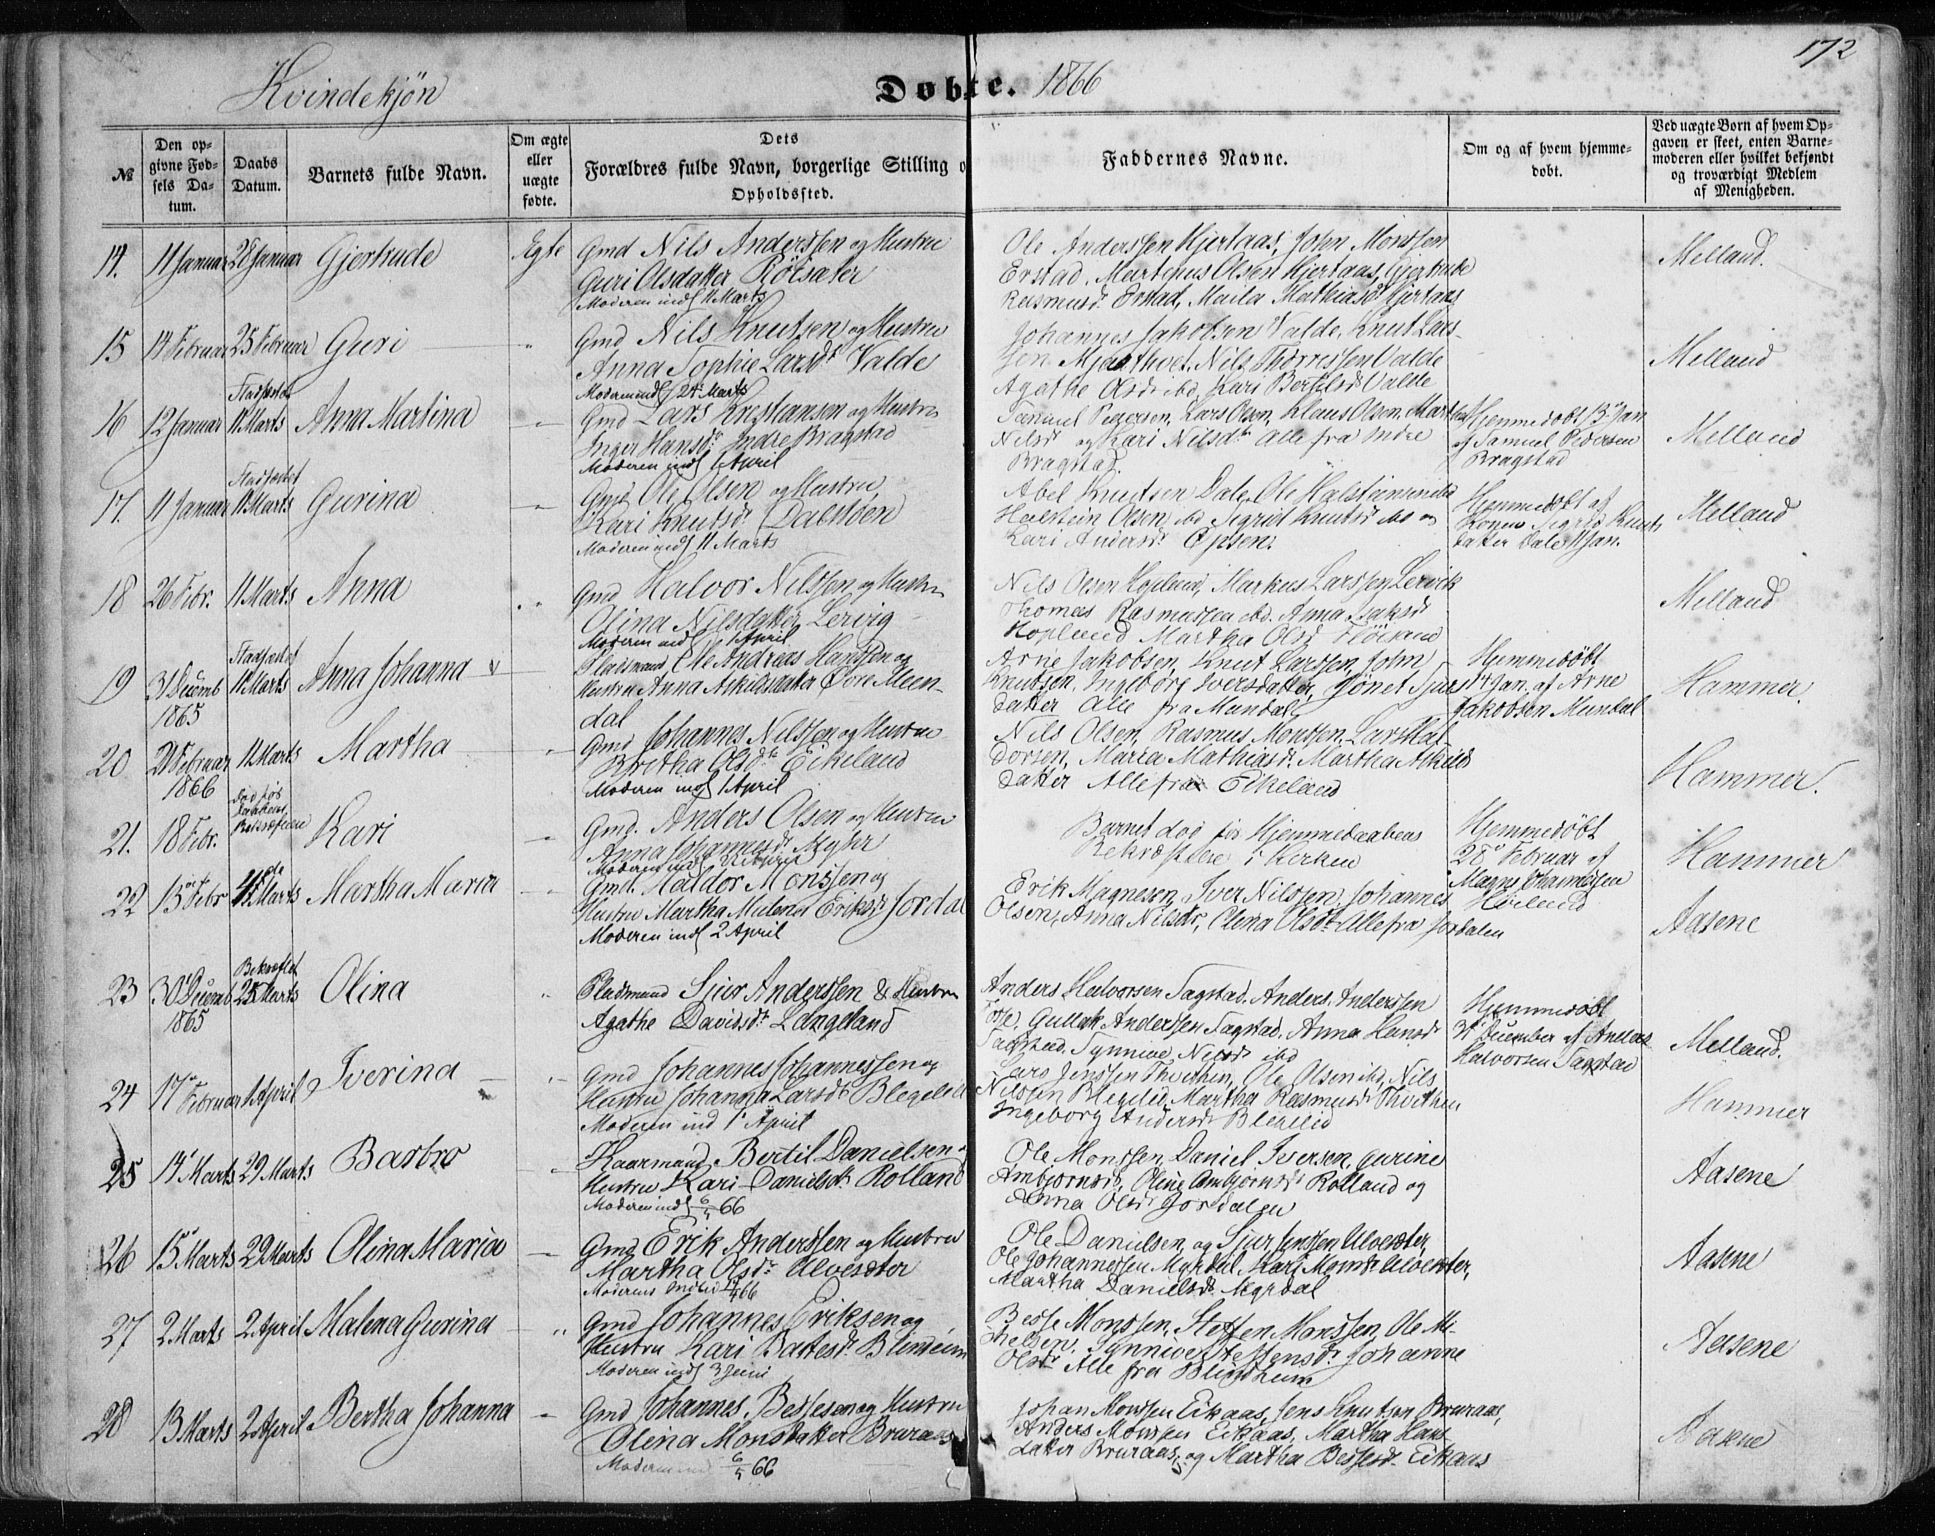 172
Kvindekjön
Døbte. 1866
№
Den opgivne Fødsels Datum.
Daabs Datum.
Barnets fulde Navn.
Om ægte eller uægte fødte.
Dets
Forældres fulde Navn, borgerlige Stilling o
Opholdssted.
Faddernes Navne.
Om og af hvem hjemmedøbt.
Ved uægte Børn af hvem Opgaven er skeet, enten Barnemoderen eller hvilket bekjendt og troværdigt Medlem af Menigheden.
14. 11 Januar 28 Januar Gjertrude Egte Gmd Nils Anderssen og Hustru
Guri Olsdatter Rölsæter
Moderen indl 11 Marts
Ole Anderssen Hjertaas, John Monssen
Erstad, Martinus Olsen Hjertaas, Gjertrude
Rasmusd. Erstad, Hjertaas
Melland.
15 14 Februar 25 Februar Guri " Gmd Nils Knutsen og Hustru
Anna Sophie Larsdr Valde
Moderen indl 24 Marts
Johannes Jakobsen Valde, Knut Lars-
sen Nils Valde
Agathe Olsdr ibd, Kari Valde
Melland
16 12 Januar Stadfæstet 11 Marts Anna Martina " Gmd Lars Kristiansen og Hustru
Inger Hansdr Indre Bragstad
Moderen indl 1 April
Samuel Pedersen, Lars Olsen, Klaus Olsen,
Nilsdr og Kari Nilsdr Alle fra Indre
Bragstad.
Hjemmedöbt 13 Jan
af Samuel Pedersen
Bragstad
Melland
17. 11 Januar Stadfæstet 11 Marts Gurina " Gmd Ole Olsen og Hustru
Kari Knutsdr Dalstöen
Moderen indl 11 Marts
Abel Knutsen Dale, Ole
Halstein Olsen ibd Sigrid Knutsdr ibd og
Kari Andersdr Opsen.
Hjemmedöbt af
Konen Sigrid Knuts
datter Dale 11 Jan.
Melland
18 26 Febr. 11 Marts Anna " Gmd Halvor Nilssen og Hustru
Olina Nilsdatter Lervig
Moderen indl 1 April
Nils Olsen Markus Larssen Lervik
Thomas Rasmussen ibd. Anna
Hopland Martha Olsd
Melland
19 31 Decemb 1865 Stadfæstet 11 Marts Anna Johanna " Pladsmand Ole Andreas Hanssen og
Hustru Anna Askildsdatter Øvre Mun-
dal
Arne Jakobsen, Knut Larssen, John
Knutsen, Ingeborg Iversdatter, Jönet Sjurs
datter Alle fra Mundal
Hjemmedöbt
14 Jan. af Arne
Jakobsen Mundal
Hammer.
20 21 Februar 1866 11 Marts Martha " Gmd Johannes Nilssen og Hustru
Britha Olsdr Eikeland
Moderen indl 1 April
Nils Olsen, Rasmus Monsen, Lars Hal
dorsen, Maria Mathiasdr Martha Askilds
datter Alle fra Eikeland
Hammer.
21. 18 Febr. Död för Daabens Bekræftelse Kari " Gmd. Anders Olsen og Hustru
Anna Johannesdr Myhr
Barnet död för Hjemmedaabens
Bekræftelse i Kirken
Hjemmedöbt
28 Februar af
Magne
Hammer
22 15 Febr Marts Martha Maria " Gmd. Haldor Monssen og
Hustru Martha Malena Eriksdr Jordal
Moderen indl 2 April
Erik Magnesen, Iver Nilssen, Johannes
Olsen, Anna Nilsdr, Olina Olsdr Alle fra Jordalen
Aasene
23 30 Decemb 1865 Bekræftet 25 Marts Olina " Pladsmand Sjur Anderssen & Hustru
Agathe Davidsdr Langeland
Anders Halvorsen Tagstad. Anders Anderssen
Gullak Anderssen Tagstad. Anna Hansdr
Tagstad. Synnive Nilsdr ibd
Hjemmedöbt
31 December af Anders
Halvorsen Tagstad
Melland.
24 17 Februar 1 April Iverina " Gmd Johannes Johannessen og
Hustru Johanna Larsdr Blegelid
Moderen ind 1 April
Lars Jenssen Thvethen, Ole Olsen ibd, Nils
Nilssen Blegelid, Martha Rasmusdr Thvethen
Ingeborg Andersdr Blegelid
Hammer
25 14 Marts 29 Marts Barbro " Huusmand Bertil Danielsen o
Hustru Kari Danielsdr Rolland
Moderen indl 6/5 66
Ole Monssen, Daniel Iversen, Gurine
Ambjörnsdr, Oline Ambjörnsdr Rolland og
Anna Olsdr Jordalen
Aasene
26 15 Marts 29 Marts Olina Maria — Gmd Erik Anderssen og Hustru
Martha Olsdr Ulvesæter
Ole Danielsen, og Sjur Jenssen Ulvesæter,
Ole Johannessen Myrdal, Kari Monsdr Ulvesæter,
Martha Danielsdr Myrdal
Aasene
27 2 Marts 2 April Malena Gurina " Gmd Johannes Eriksen og
Hustru Kari Blindheim
Moderen indl 3 Juni
Besse Monssen, Steffen Monssen, Ole Mi-
kelsen, Synnive Steffensdr Johanne
Olsdr Alle fra Blindheim
Aasene
28 13 Marts 2 April Bertha Johanna " Gmd Johannes Bessesen og Hustru
Olina Monsdatter Bruraas
Moderen ind 6/5 66
Johan Monssen Eikaas, Jens Knutsen Bruraas,
Anders Monssen Eikaas, Martha Hans
datter Bruraas, og Martha Bessesdr Eikaas
Aasene